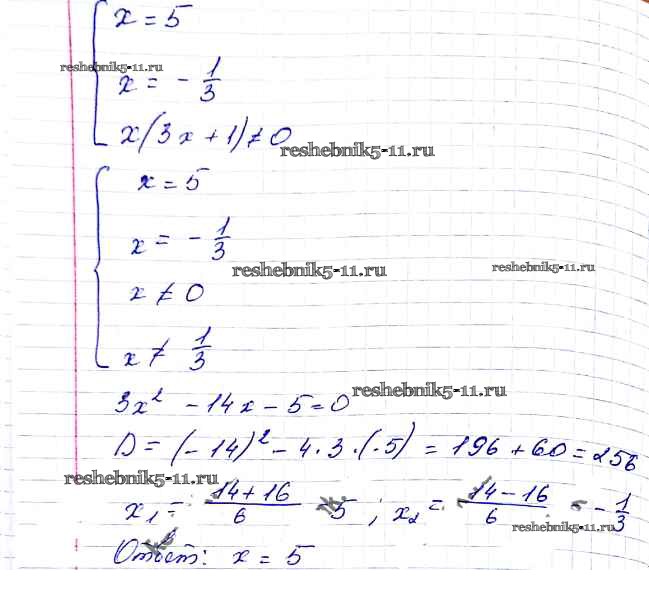 x = 5
reshebnik5-11.ru
x = - 1/3
x(3x + 1) ≠ 0
reshebnik5-11.ru
x = 5
x = - 1/3
reshebnik5-11.ru
reshebnik5-11.ru
x ≠ 0
x ≠ 1/3
3x² - 14x - 5 = 0
reshebnik5-11.ru
D = (-14)² - 4·3·(-5) = 196 + 60 = 256
reshebnik5-11.ru
x₁ = (14+16)/6 = 5 ; x₂ = (14-16)/6 = - 1/3
reshebnik5-11.ru
Ответ: x = 5